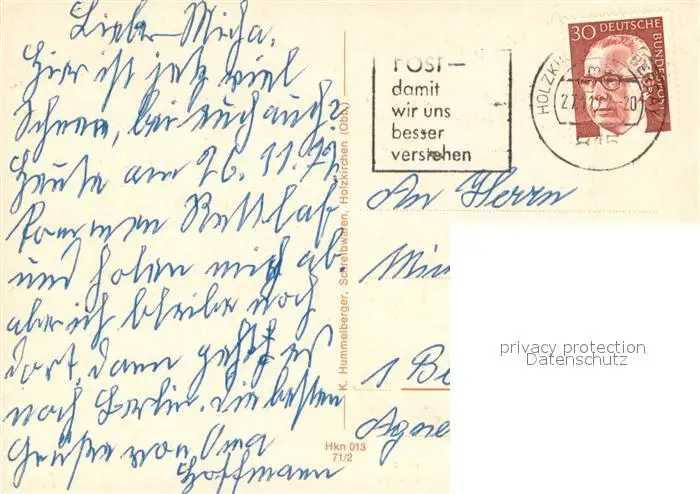 Lieber Micha,
Hier ist jetz viel
Schnee, bei euch auch?
Heute am 26.11.72
kommen
und holen mich ab,
aber ich bleibe noch
dort, dann geht es
nach Berlin. Die besten
Grüße von Oma
Hoffmann
K. Hummelberger, Schreibwaren, Holzkirchen (Obb.)
Hkn 013
71/2
POST –
damit
wir uns
besser
verstehen
HOLZKIR
815
30 DEUTSCHE BUNDESPOST
An Herrn
1 Be
Agne
privacy protection
Datenschutz